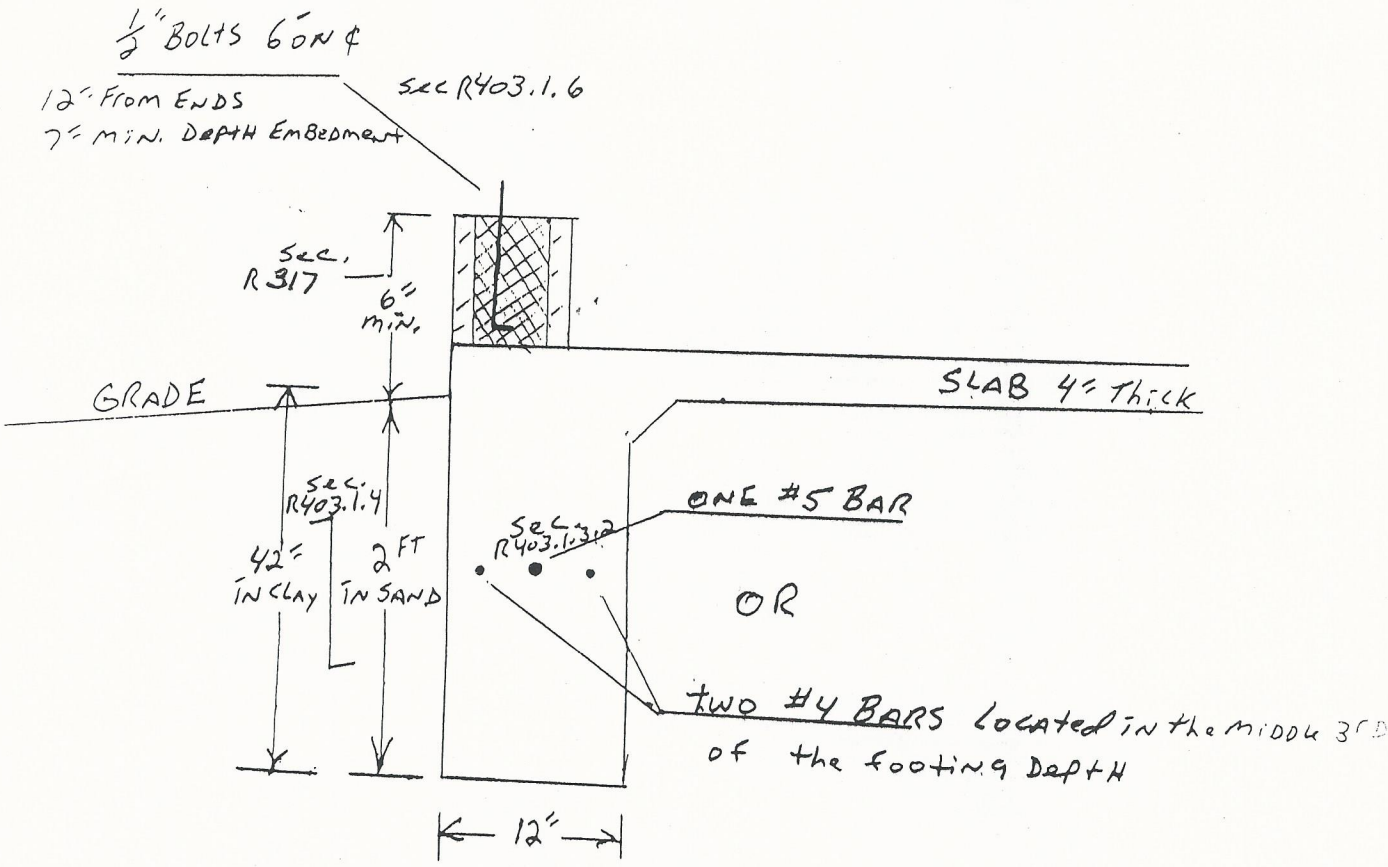 1/2" BOLTS 6' ON ¢
12" From ENDS
7" MIN. DEPTH EMBEDMENT
Sec R403.1.6
Sec.
R317
6"
MIN.
GRADE
SLAB 4" Thick
Sec.
R403.1.4
42"
IN CLAY
2 FT
IN SAND
Sec.
R403.1.3.2
ONE #5 BAR
OR
TWO #4 BARS Located in the MIDDLE 3rD
of the footing Depth
12"